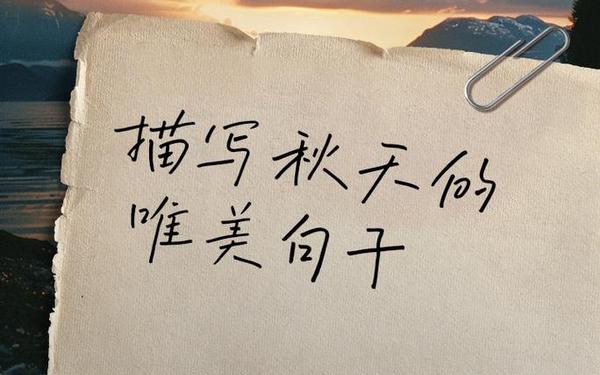 描写秋天的
唯美句子